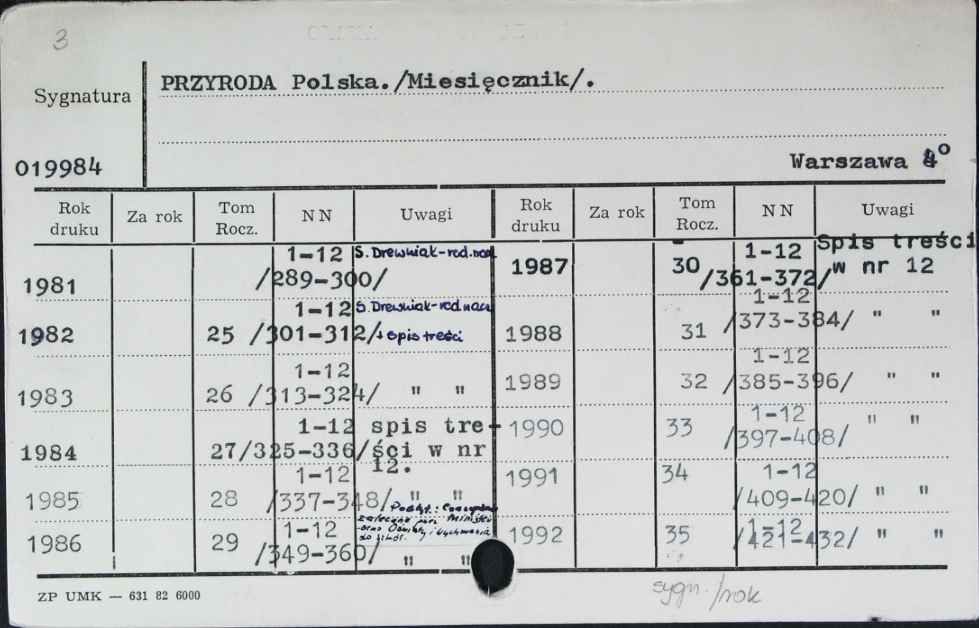 3
Sygnatura
PRZYRODA Polska./Miesięcznik/.
019984
Warszawa 4°
Rok druku Za rok Tom Rocz. NN Uwagi Rok druku Za rok Tom Rocz. NN Uwagi
1981 1-12 /289-300/ S. Drewniak-red.nacz
1982 25 1-12 /301-312/ S. Drewniak-red nacz + spis treści
1983 26 1-12 /313-324/ " "
1984 27 1-12 /325-336/ spis treści w nr 12.
1985 28 1-12 /337-348/ " "
1986 29 1-12 /349-360/ " "
1987 30 1-12 /361-372/ Spis treści w nr 12
1988 31 1-12 /373-384/ " "
1989 32 1-12 /385-396/ " "
1990 33 1-12 /397-408/ " "
1991 34 1-12 /409-420/ " "
1992 35 1-12 /421-432/ " "
ZP UMK — 631 82 6000
sygn./rok